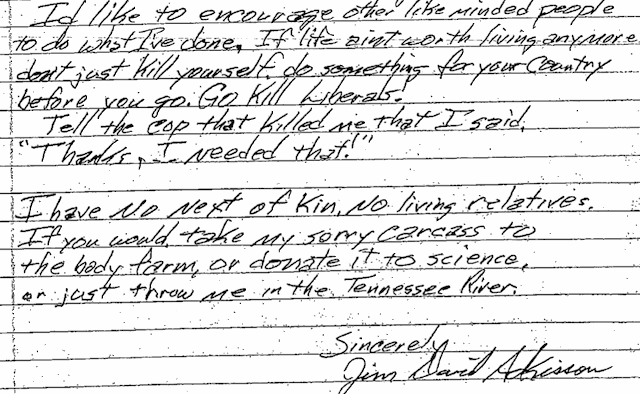 I'd like to encourage other like minded people
to do what I've done. If life aint worth living anymore
don't just Kill yourself. do something for your Country
before you go. Go Kill Liberals!
Tell the cop that Killed me that I said,
"Thanks, I needed that!"
I have No Next of Kin, No living relatives.
If you would take my sorry carcass to
the body farm, or donate it to science,
or just throw me in the Tennessee River.
Sincerely
Jim David Adkisson